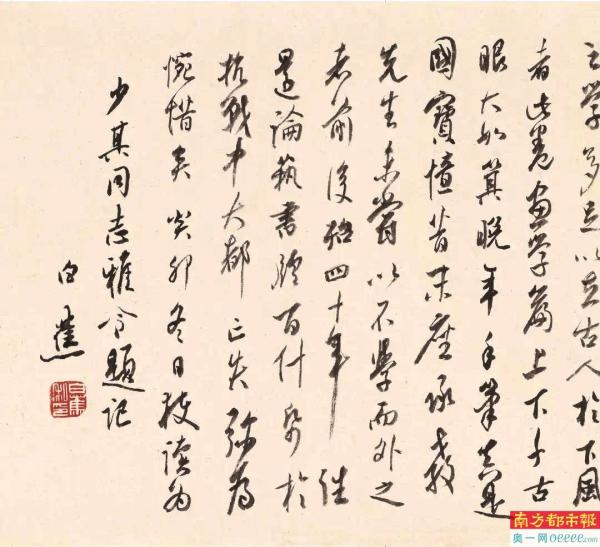 之学多足以立古人於下风
者此卷画学篇上下千古
眼大如箕晚年手笔真是
國寶憶昔末座承教
先生未嘗以不學而外之
者前後振四十年 往
還論藝書牘百什 於
抗戰中大都亡失弥為
惋惜矣癸卯冬日校读为
少其同志雅令题记
白蕉
南方都市報
奥一网oeeee.com